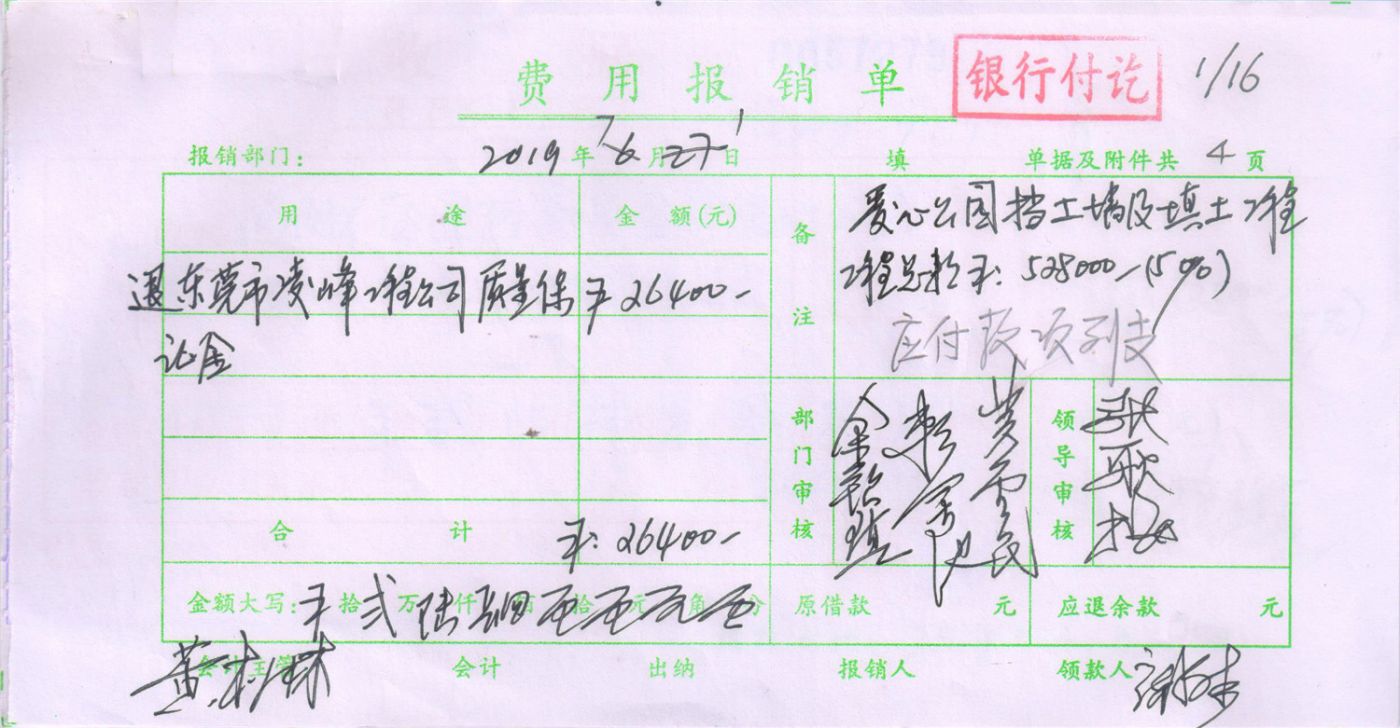 费用报销单 银行付讫 1/16
报销部门: 2019年 6月27日 填 单据及附件共 4 页
用途 金额(元) 备注 爱心公园挡土墙及填土工程
退东莞市凌峰工程公司质量保 ¥26400- 工程总款¥:528000-(5%)
证金 应付款项列支
部门审核 领导审核
合计 ¥:26400-
金额大写: 拾 贰万 陆仟 肆佰 零拾 零元 零角 零分 原借款 元 应退余款 元
会计主管 会计 出纳 报销人 领款人